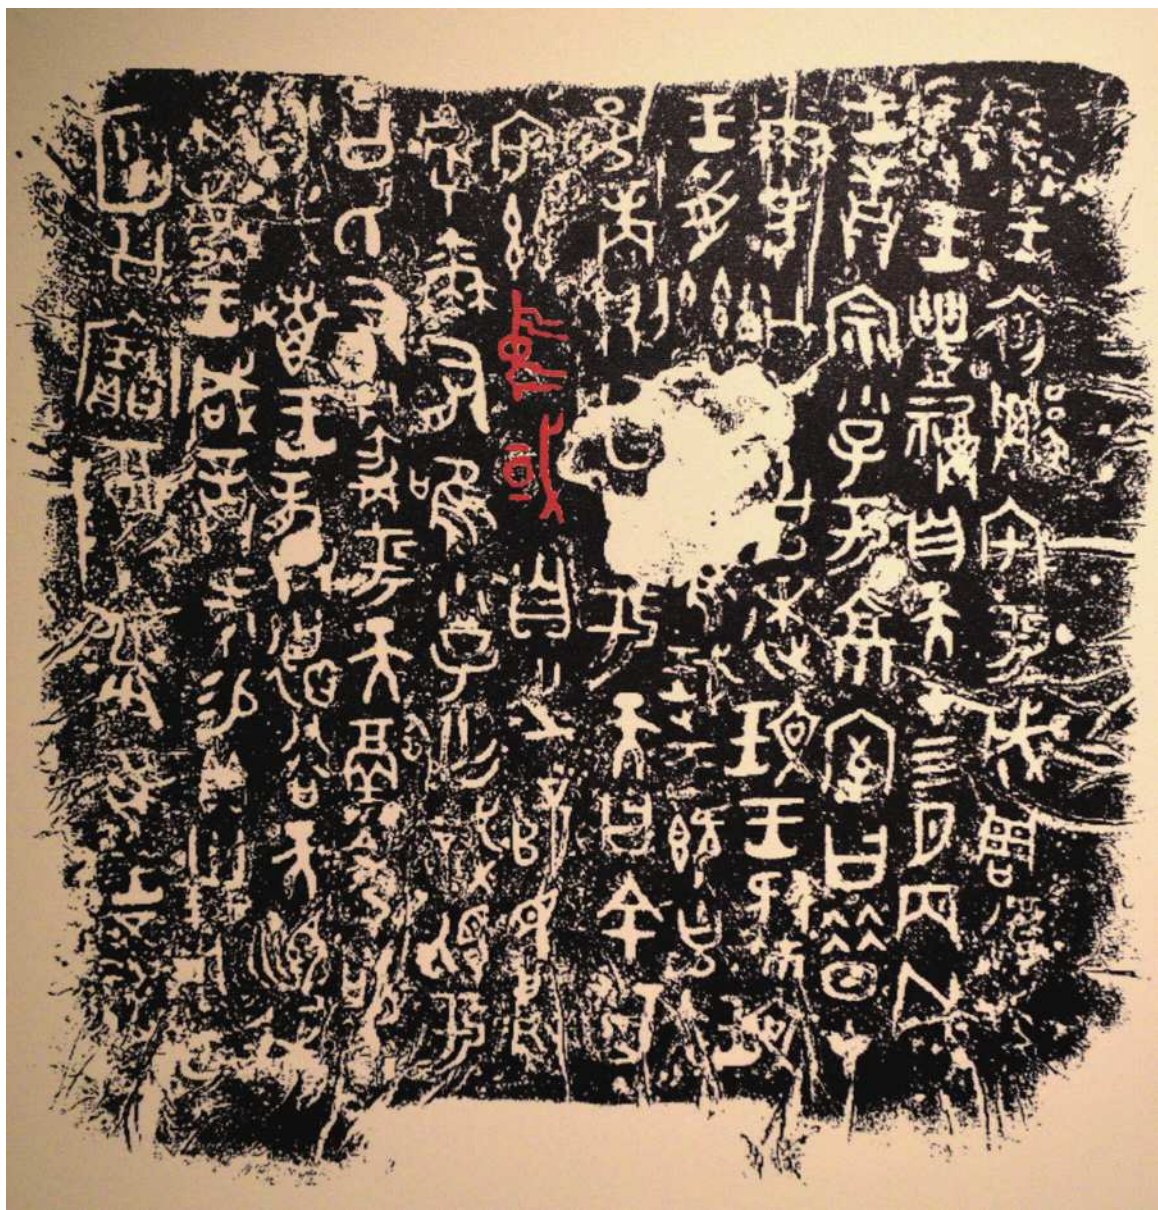 隹王初遷宅于成周復爯
珷王豊祼自天才四月丙戌
王誥宗小子于京室曰昔才
爾考公氏克逨玟王肆玟
王受茲大令隹珷王既克大
邑商則廷告于天曰余其
宅茲中或自之乂民烏
虖爾有唯小子亡識視于
公氏有爵于天徹令敬
享哉叀王恭德谷天順我
不敏王咸誥何易貝卅朋用乍
公寶尊彝隹王五祀